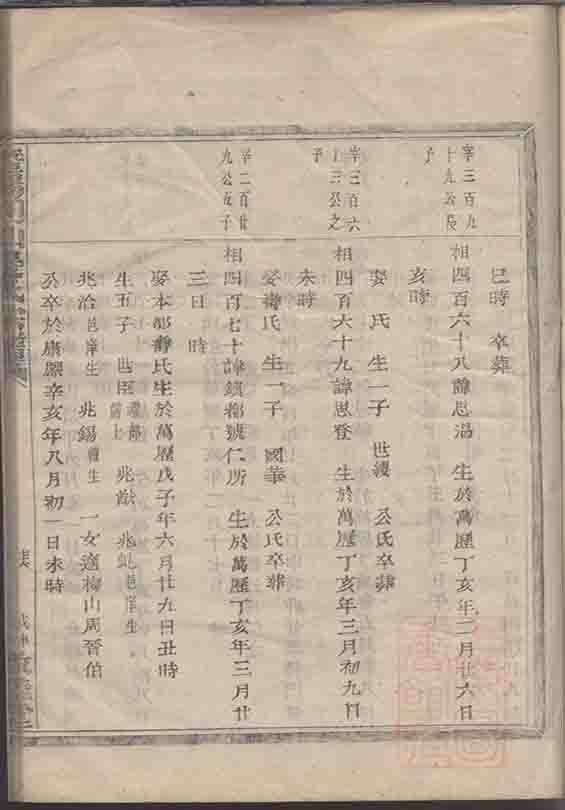 巳時 卒葬
宰三百九
十九公長
子
相四百六十八諱思温 生於萬歷丁亥年二月廿六日
亥時
娶 氏 生一子 世縷 公氏卒葬
宰三百六
十三公之
子
相四百六十九諱思登 生於萬歷丁亥年三月初九日
未時
娶 氏 生一子 國華 公氏卒葬
宰二百廿
九公次子
相四百七十諱鎮 號仁所 生於萬歷丁亥年三月廿
三日 時
娶本 氏生於萬歷戊子年六月廿九日丑時
生五子 世臣 兆猷 兆 邑庠生
兆治邑庠生 兆錫 生 一女適梅山周晉伯
公卒於康熙辛亥年八月初一日未時